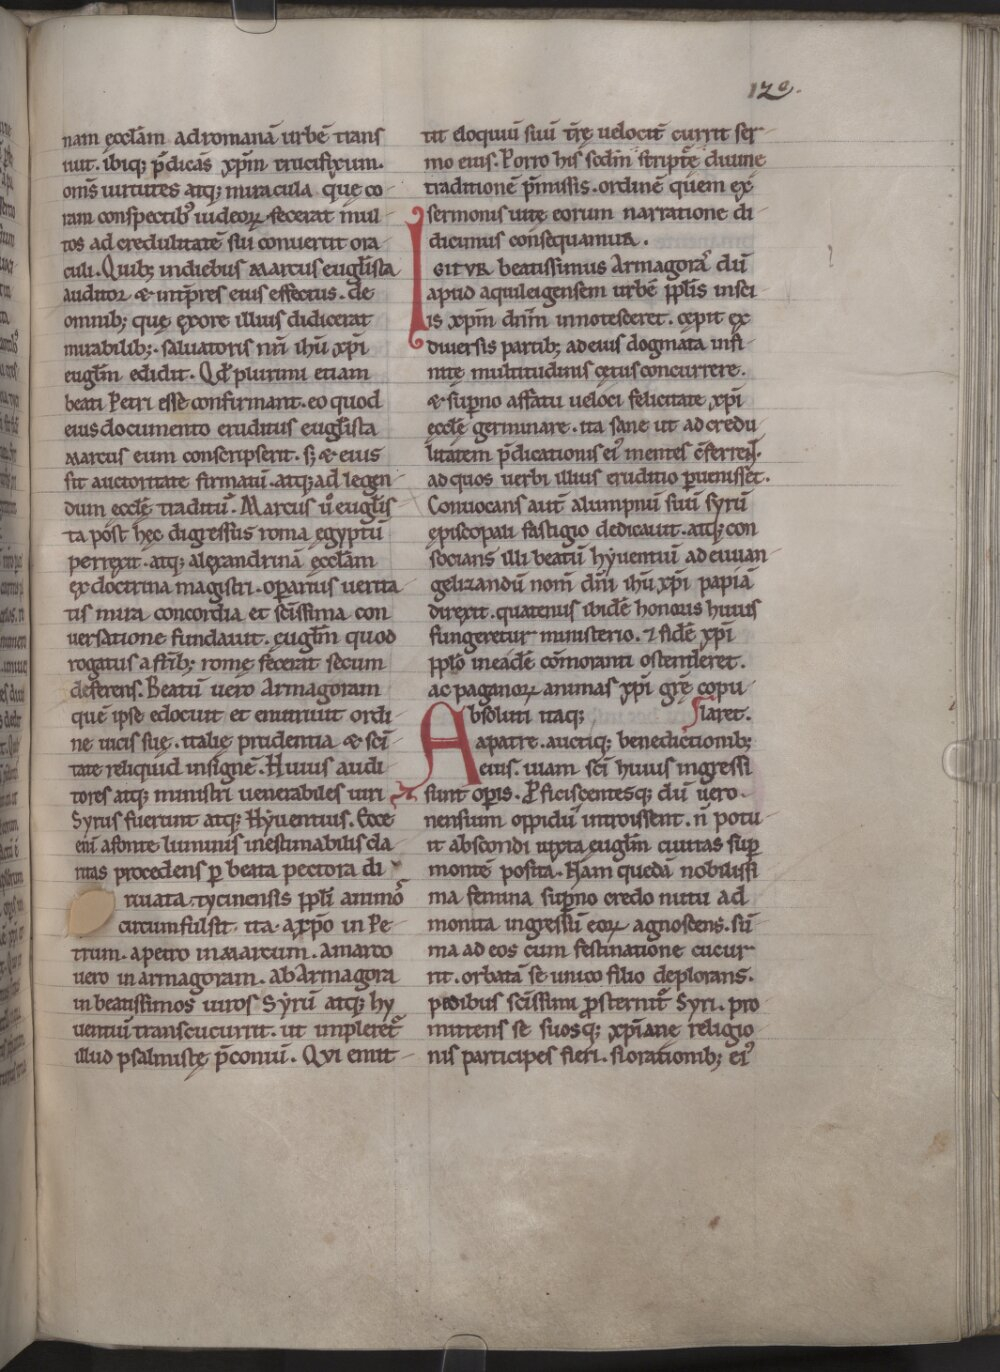 129.
nam ęccłam ad romanā urbē trans
iuit. ibiq; p̄dicās xp̄m crucifixum.
om̄s uirtutes atq; miracula quę co-
ram conspectib; iudeoꝝ fecerat mul
tos ad credulitatē sui conuertit ora
culi. Quib; in diebus marcus euglista
auditor & int̄pres eius effectus. de
omnib; quę ęx ore illius didicerat
mirabilib;. saluatoris nr̄i ihū xp̄i
euglm̄ edidit. Qđ plurimi etiam
beati Petri esse confirmant. eo quod
eius documento eruditus euglista
marcus eum conscripserit. s; & eius
sit auctoritate firmatū. atq; ad legen
dum ecclę traditū. Marcus ū euglis
ta post hęc digressus roma egyptū
perrexit. atq; alexandrinā ęcclam
ex doctrina magistri. operarius uerita
tis mira concordia et sc̄issima con
uersatione fundauit. ęuglm̄ quod
rogatus a frib; romę fecerat secum
deferens. Beatū uero Armagoram
quē ipse edocuit et enutriuit ordi-
ne uicis suę. italię prudentia & sc̄i
tate reliquid insignē. Huius audi
tores atq; ministri uenerabiles uiri
Syrus fuerunt atq; Hẏuentius. Ecce
eni a fonte luminis inestimabilis cla
ritas procedens p beata pectora di-
riuata tycinensis ppli animo
circumfulsit. ita. a xp̄o in Pe-
trum. a petro in marcum. a marco
uero in armagoram. ab Armagora
in beatissimos uiros Sẏrū atq; hy
uentiū transcucurrit. ut impleret̄
illud psalmistę p̄coniū. Qvi emit-
tit eloquiū suū t̄rę uelocit̄ currit ser-
mo eius. Porro his scd̄m scriptę diuine
traditionē p̄missis. ordinē quem ex
sermonis uitę eorum narratione di-
dicimus consequamur.
IGITVR beatissimus Armagoras dū
apud aquileigensem urbē pplis insci
is xp̄m dn̄m innotesceret. cępit ex
diuersis partib; ad eius dogmata infi-
nitę multitudinis cętus concurrere.
& sup̄no affatu ueloci felicitate xp̄i
ecclę germinare. ita sane ut ad credu
litatem p̄dicationis ei mentes c̄ferrent.
ad quos uerbi illius eruditio puenisset.
Conuocans aut̄ alumpnū suū syrū
ępiscopali fastigio dedicauit. atq; con
socians illi beatū hẏuentiū ad euuan
gelizandū nom̄ dn̄i ihū xp̄i papiā
direxit. quatenus ibidē honoris huius
fungeretur ministerio. ⁊ fidē xp̄i
pplo in eadē cōmoranti ostenderet.
ac paganoꝝ animas xp̄i grę copu-
laret.
Absoluti itaq;
a patre. auctiq; benedictionib;
eius. uiam sc̄i huius ingressi
sunt opis. Pficiscentesq; dū uero-
nensium oppidū introissent. n̄ potu
it abscondi iuxta euglm̄ ciuitas sup
montē posita. Nam quedā nobilissi
ma femina sup̄no credo nutu ad
monita ingressū eoꝝ agnoscens. sū-
ma ad eos cum festinatione cucur-
rit. orbatā se unico filio deplorans.
pedibus sc̄issimi p̄sternit̄ Syri. pro-
mittens se suosq; xp̄iane religio-
nis participes fieri. si orationib; ei